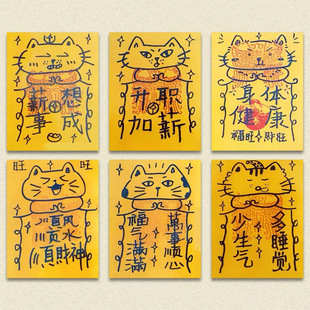 薪想
事成
升职
加薪
身体
健康
福旺 财旺
旺 旺
顺风
顺水
顺财神
萬事顺心
福气满满
多睡觉
少生气